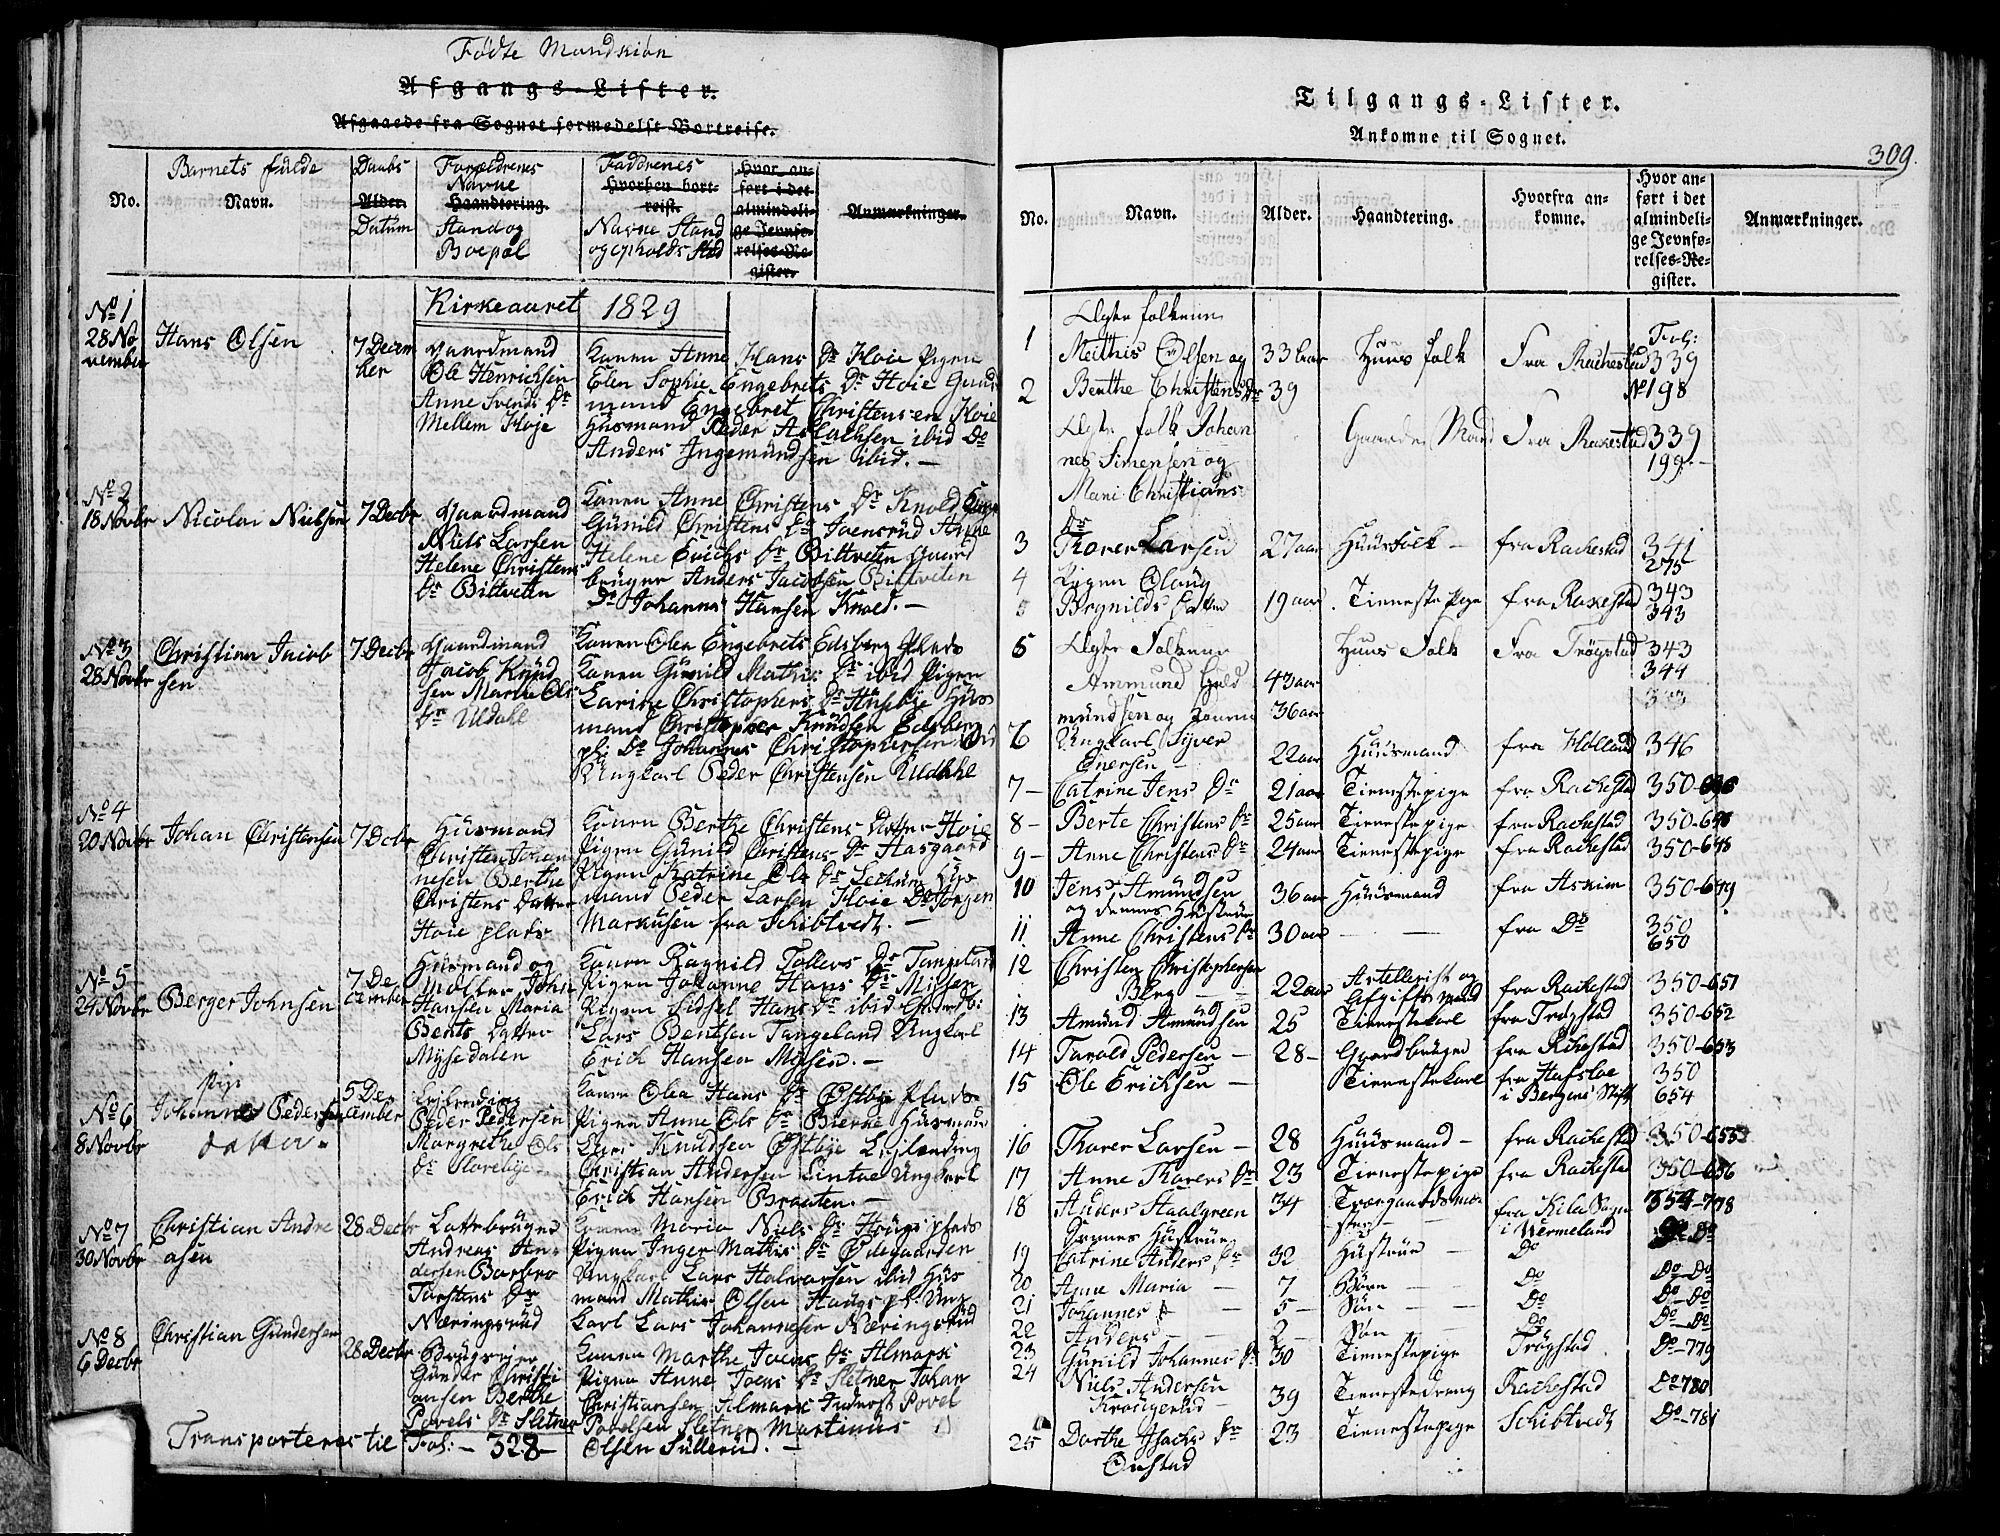 Fødte Mandkiøn
Afgangs-Lister.
Afgaaede fra Sognet formedelst Bortreise.
No.
Barnets fulde
Navn.
Daabs
Alder.
Datum
Forældrenes
Navne
Haandtering.
Stand og
Boepæl
Faddrenes
Hvorhen bort-
reist.
Navne Stand
og opholds Stæd
Hvor an-
ført i det
almindeli-
ge Jevnfø-
relses-Re-
gister.
Anmærkninger.
Kirkeaaret 1829
No 1
28 No
vember
Hans Olsen
7 Decem
ber
Gaardmand
Ole Henrichsen
Anne Svends Dr
Mellem Hoje
Konen Anne Hans Dr Hoie Pigen
Elen Sophie Engebrets Dr Hoie Gaard
mand Engebret Christensen Hoie
Husmand Peder Aslachsen ibid Do
Anders Ingemundsen ibid. —
No 2
18 Novbr
Nicolai Nielsen
7 Decbr
Gaardmand
Niels Larsen
Helene Christens
Dr Biltveten
Konen Anne Christens Dr Knold
Gunild Christens Dr Joensrud Anne
Helene Erichs Dr Biltveten Gaard
bruger Anders Jacobsen Biltveten
Do Johannes Hansen Knold. —
No 3
28 Novbr
Christian Jacob
sen
7 Decbr
Gaardmand
Jacob Knud
sen Marthe Ols
Dr Uldahl
Konen Olea Engebrets Edsberg Plads
Konen Gunild Mathis Dr ibid Pigen
Larine Christophers Dr Huseby Hus
mand Christopher Knudsen Edsberg
pl: Do Johannes Christophersen ibid
Ungkarl Peder Christensen Uldahl
No 4
20 Novbr
Johan Christensen
7 Dcbr
Husmand
Christen Johan
nesen Berthe
Christens Datter
Hoie plads
Konen Berthe Christens Datter Hoie
Pigen Gunild Christens Dr Aasgaard
Pigen Katrine Ols Dr Lechum Hus
mand Peder Larsen Hoie Do Jørgen
Markusen fra Schibtvedt. —
No 5
24 Novbr
Berger Johnsen
7 De
cember
Husmand og
Møller John
Hansen Maria
Bents Datter
Mysedalen
Konen Ragnild Tollers Dr Tangeland
Pigen Johanne Hans Dr Missen
Pigen Sidsel Hans Dr ibid Gaardb:
Lars Bentsen Tangeland Ungkarl
Erich Hansen Mysen. —
No 6
8 Novbr
pige
Johanne Peders
datter.
5 De
cember
Leilending
Peder Pedersen
Margrethe Ols
Dr Slorebye
Konen Olea Hans Dr Østbye Plads
Pigen Anne Ols Dr Bierke Husmand
Lars Knudsen Østbye Leilending
Christian Andersen Lintoe Ungkarl
Erich Hansen Braaten. —
No 7
30 Novbr
Christian Andre
asen
28 Decbr
Lottebruger
Andreas An-
dersen Barbro
Torstens Dr
Næringsrud
Konen Maria Niels Dr Haugs plads
Pigen Inger Mathis Dr Ødegaarden
Ungkarl Lars Halvorsen ibid Hus
mand Mathis Olsen Haugs pl. Ung
Karl Lars Johannesen Næringsrud
No 8
6 Decbr
Christian Gundersen
28 Decbr
Brugseier
Gunder Christi
ansen Berthe
Povels Dr Sletner
Konen Marthe Joens Dr Almark
Pigen Anne Joens Dr Sletner Johan
Christiansen Almark Inderst Povel
Povelsen Sletner Martinus
Olsen Sullerud. —
Transporteres til Fol: — 328 —
Tilgangs-Lister.
Ankomne til Sognet.
309.
No.
Navn.
Alder.
Haandtering.
Hvorfra an-
komne.
Hvor an-
ført i det
almindeli-
ge Jevnfø-
relses-Re-
gister.
Anmærkninger.
Ægte folkene
1 Mathis Olsen og 33 aar Huus folk Fra Rachestad Fol: 339
2 Berthe Christens Dr 39 No 198
Ægte folk Johan Gaarder Mand Fra Rakestad 339
nes Simensen og 199. —
Mari Christians
Dr
3 Thorer Larsen 27 aar Huusfolk — fra Rackestad 341
275
4 Pigen Olaug
Brynilds Datter 19 aar. Tienestepige fra Rakestad 343
343
5 Ægte Folkene Huus Folk Fra Trøgstad 343
Ammund Guld 43 aar 344
mundsen og 36 aar
6 Ungkarl Syver
Enersen — 22 aar Huusmand fra Høland 346
7 — Catrine Jens Dr 21 aar Tienestepige fra Rackestad 350-
8 — Berte Christens Dr 25 aar Tienestepige fra Rackestad 350-
9 — Anne Christens Dr 24 aar Tienestepige fra Rackestad 350-648
10 Jens Amundsen 36 aar Huusmand fra Askim 350-649
og dennes Hustrue
11 Anne Christens Dr 30 aar — — fra Do 350
650
12 Christen Christophersen
Berg — 22 aar Artellerist og
Afgifts mand fra Rackestad 350-651
13 Amund Amundsen 25 Tienestekarl fra Trøgstad 350-652
14 Tarald Pedersen — 28 — Gaardbruger fra Rakestad 350-653
15 Ole Ericksen — Tienestekarl fra Hafsloe 350
i Bergens Stift 654
16 Thorer Larsen — 28 Huusmand — fra Rackestad 350-655
17 Anne Thorers Dr 23 Tienestepige fra Rackestad 350-656
18 Anders Staalgreen 34 Tvergaardsme-
ster — fra Kila Sogn 354-778
Dennes Hustrue i Wermeland Do-Do
19 Catrine Anders Dr 32 Hustrue — Do
20 Anne Maria — 7 Børn — Do Do-Do
21 Johannes — 5 — Søn — Do Do-Do
22 Anders — 2 — Søn — Do Do-Do
23 Gunild Johannes Dr 30 Tienestepige Trøgstad Do-779
24 Niels Andersen
Krongerud — 39 Tienestedreng Rackestad Do-780
25 Dorthe Isachs Dr 23 Tienestepige Schibtvedt Do-781
Onstad